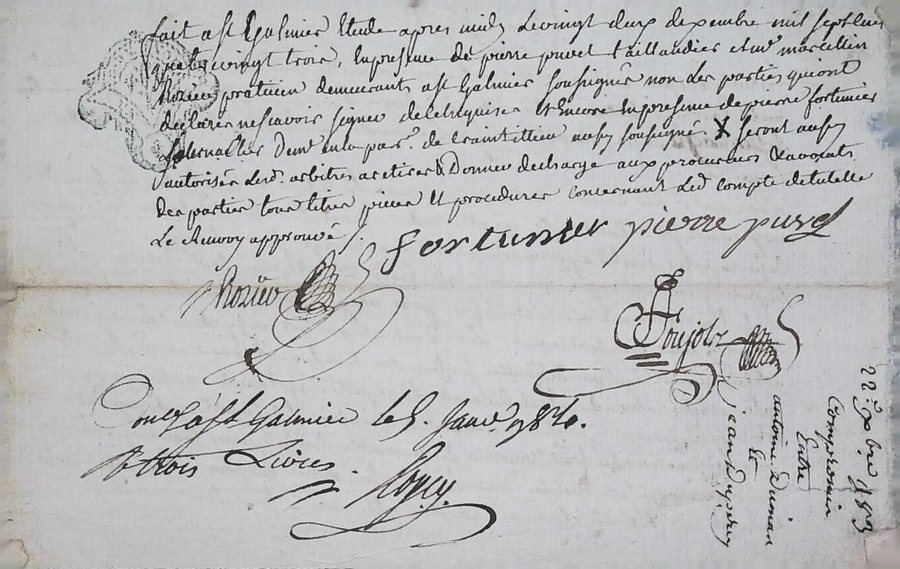 fait a St Galmier Etude apres midy Le vingt deux decembre mil sept cent
quatre vingt trois, En presence de pierre puvel taillandier et mr marcellin
Roziev praticien demeurants a St Galmier soussignés non Les parties qui ont
declarés ne scavoir signer de ce Enquises Et Encore En presence de pierre fortunier
Journallier demt en la parsse de soussigné. X seront aussy
autorisés Lesd. arbitres a retirer & Donner decharge aux procureurs & avocats
Des parties tous titres pieces Et procedures concernant Led compte de tutelle
Le Renvoy approuvé
fortunier pierre puvel
Roziev
Coujolz
St Galmier le 5. Janvr. 1784.
trois Livres.
22 Xbre 1783
Compromis
Entre
antoine
&
jean